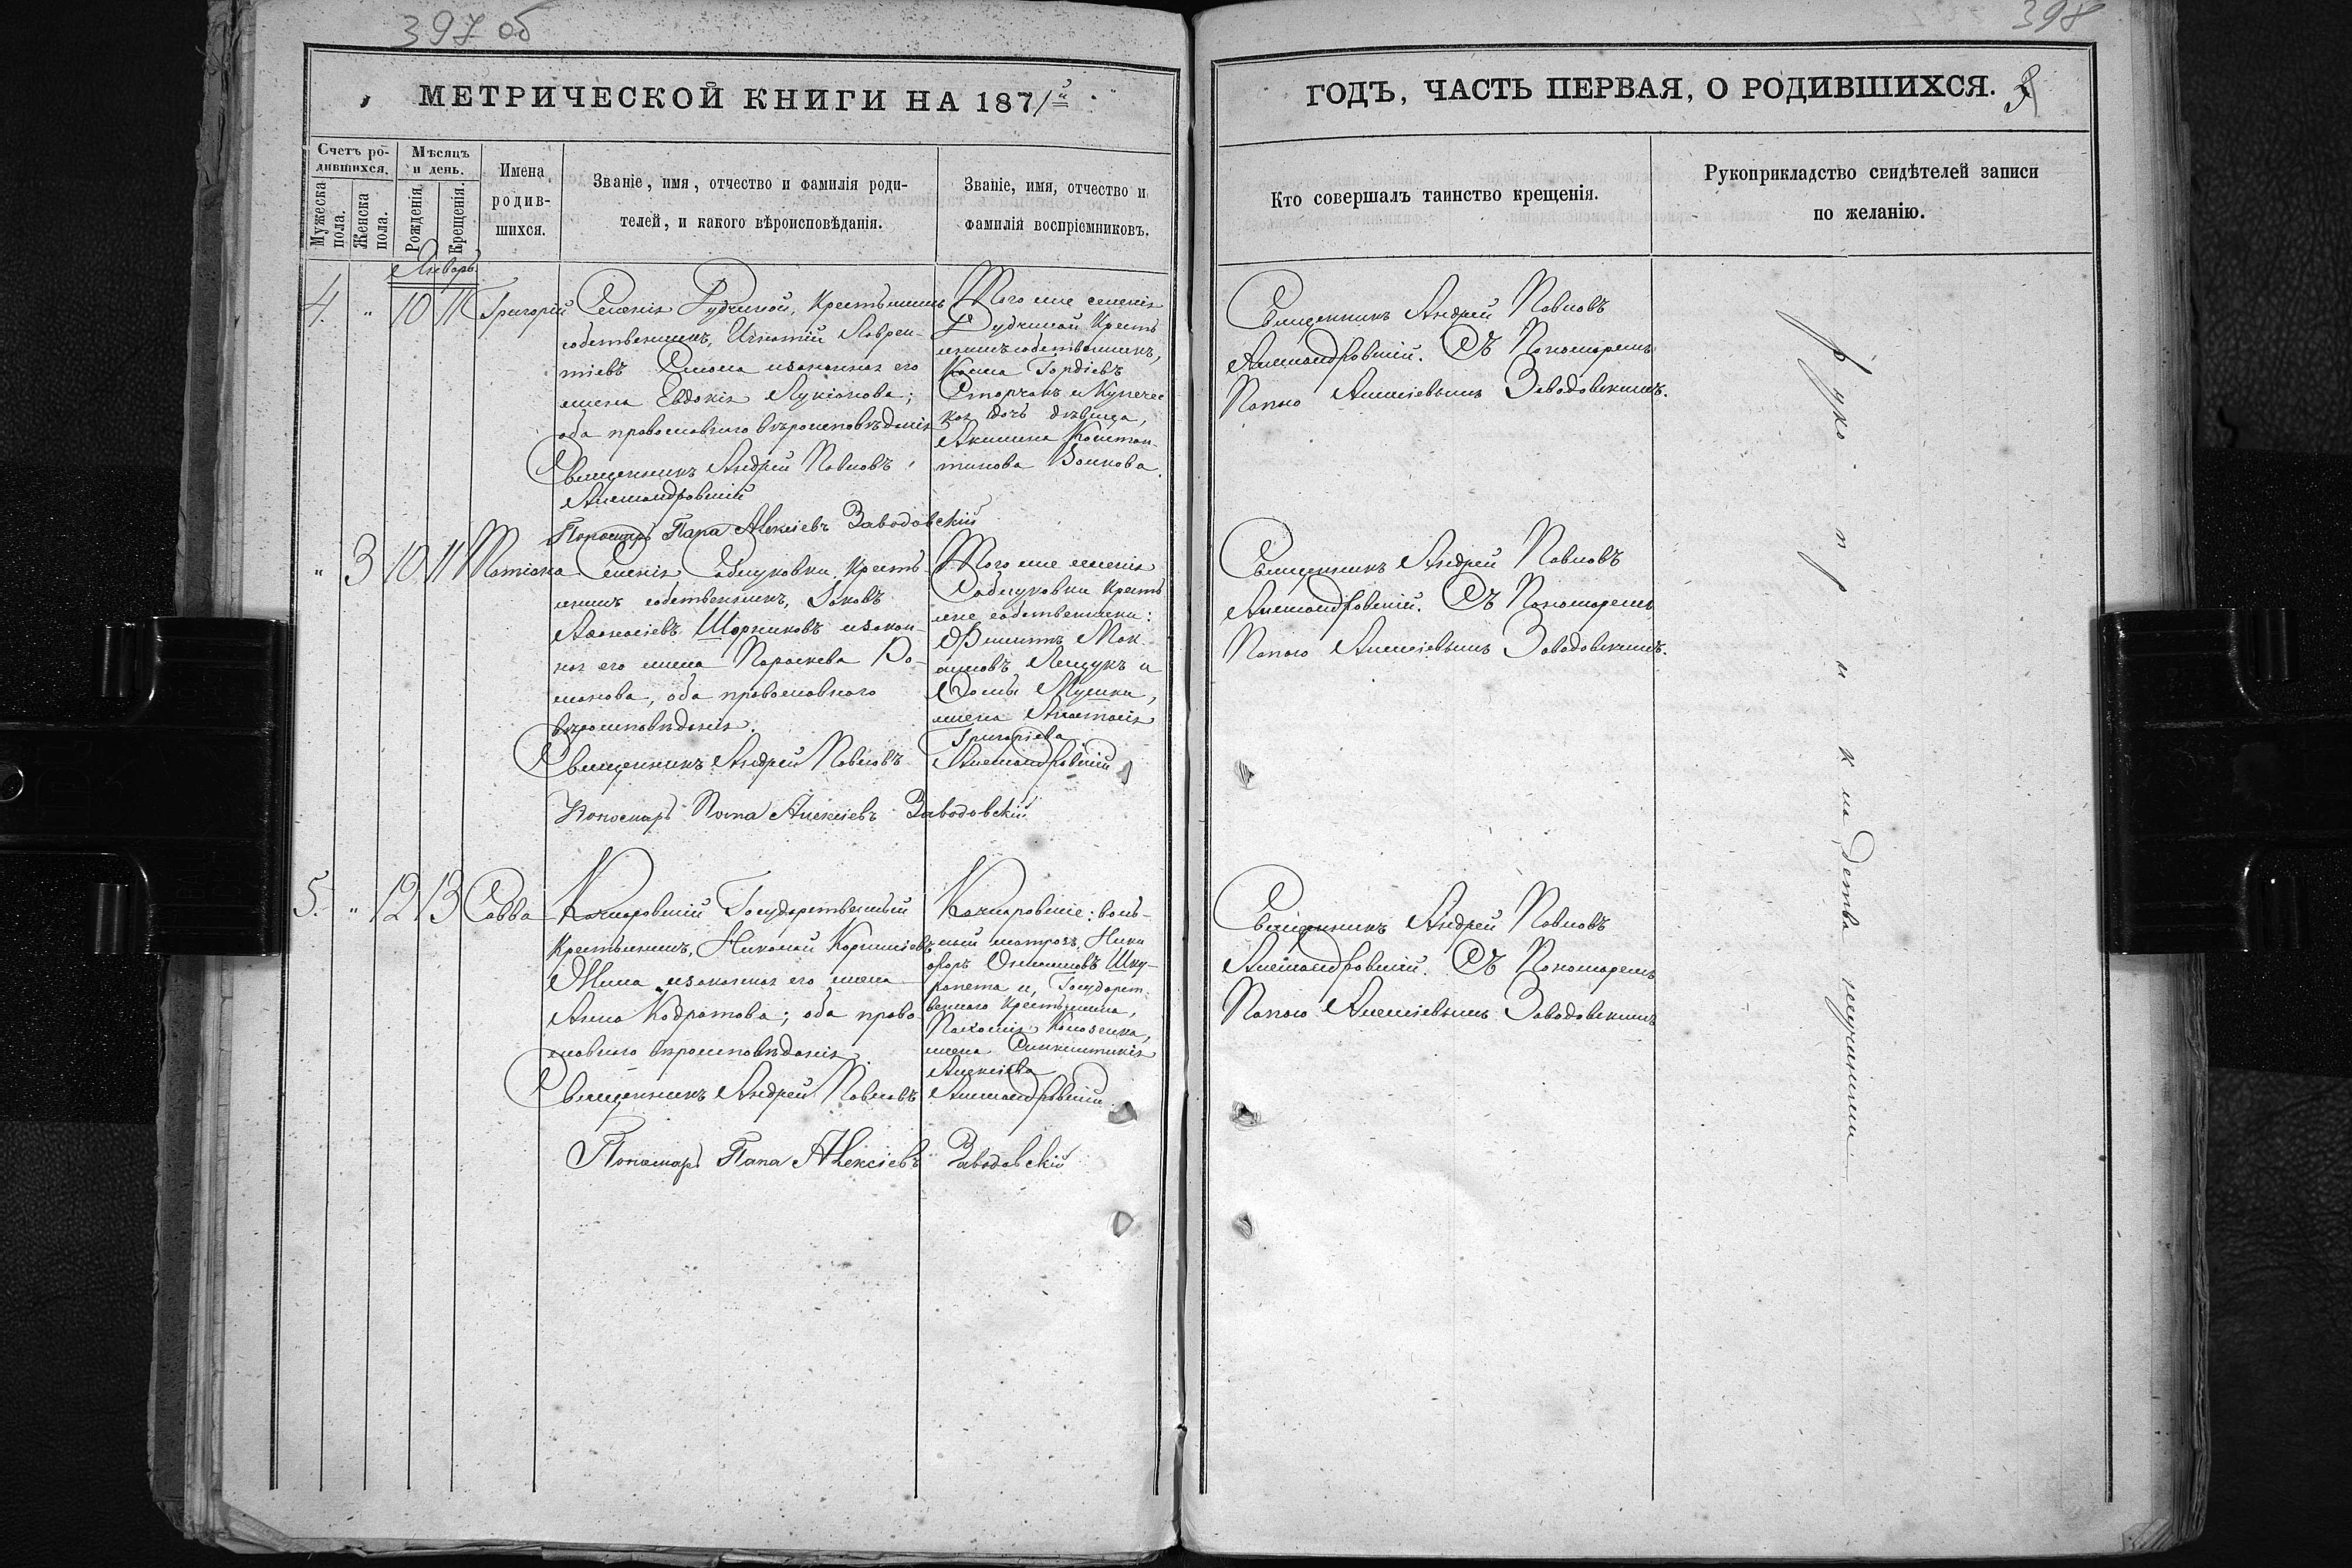 397 об
МЕТРИЧЕСКОЙ КНИГИ НА 1871й
Счетъ ро-
дившихся.
Мужеска
пола.
Женска
пола.
Мѣсяцъ
и день.
Рожденія.
Крещенія.
Имена
родив-
шихся.
Званіе, имя, отчество и фамилія роди-
телей, и какого вѣроисповѣданія.
Званіе, имя, отчество и
фамилія воспріемниковъ.
Январь
4. " 10 11 Григорій
Селенія Рудчиной, Крестьянинъ
собственникъ, Игнатій Лаврен-
тіевъ изаконная его
жена Евдокія Лукіанова;
оба православнаго вѣроисповѣданія
Священникъ Андрей Павловъ
Александровскій
Пономарь Папа Алексіевъ Заводовскій
Того же селенія
Рудчиной Кресть
янинъ собственникъ,
Гордіевъ
Сторчакъ и Купечес
кая дочь дѣвица,
Акилина Констан-
тинова Волкова.
" 3 10 11 Татіана
Селенія Садлуковки Кресть-
янинъ собственникъ, Іаковъ
Аѳанасіевъ Шорниковъ изакон-
ная его жена Параскева Ро-
манова, оба православнаго
вѣроисповѣданія.
Священникъ Андрей Павловъ Александровскій
Пономарь Папа Алексіевъ Заводовскій
Того же селенія
Садлуковки Кресть
яне собственники:
Филиппъ Мак-
симовъ Лещукъ и
Ѳомы Мушки,
жена Анастасія
Григоріева
5. " 12 13 Савва
Качкаровскій Государственный
Крестьянинъ, Николай Корниліевъ
изаконная его жена
Анна Кодратова; оба право-
славнаго вѣроисповѣданія.
Священникъ Андрей Павловъ Александровскій
Пономарь Папа Алексіевъ Заводовскій
Качкаровскіе: воль-
ный матрозъ, Ники
форъ Онисимовъ Шку-
ропета и, Государст-
веннаго Крестьянина,
Пахомія Колозенка,
жена Синклитикія
Алексіева
398
ГОДЪ, ЧАСТЬ ПЕРВАЯ, О РОДИВШИХСЯ.
Кто совершалъ таинство крещенія.
Рукоприкладство свидѣтелей записи
по желанію.
Священникъ Андрей Павловъ
Александровскій. Съ Пономаремъ
Папою Алексіевымъ Заводовскимъ.
Священникъ Андрей Павловъ
Александровскій. Съ Пономаремъ
Папою Алексіевымъ Заводовскимъ.
Священникъ Андрей Павловъ
Александровскій. Съ Пономаремъ
Папою Алексіевымъ Заводовскимъ
рукоприкладства неучинили